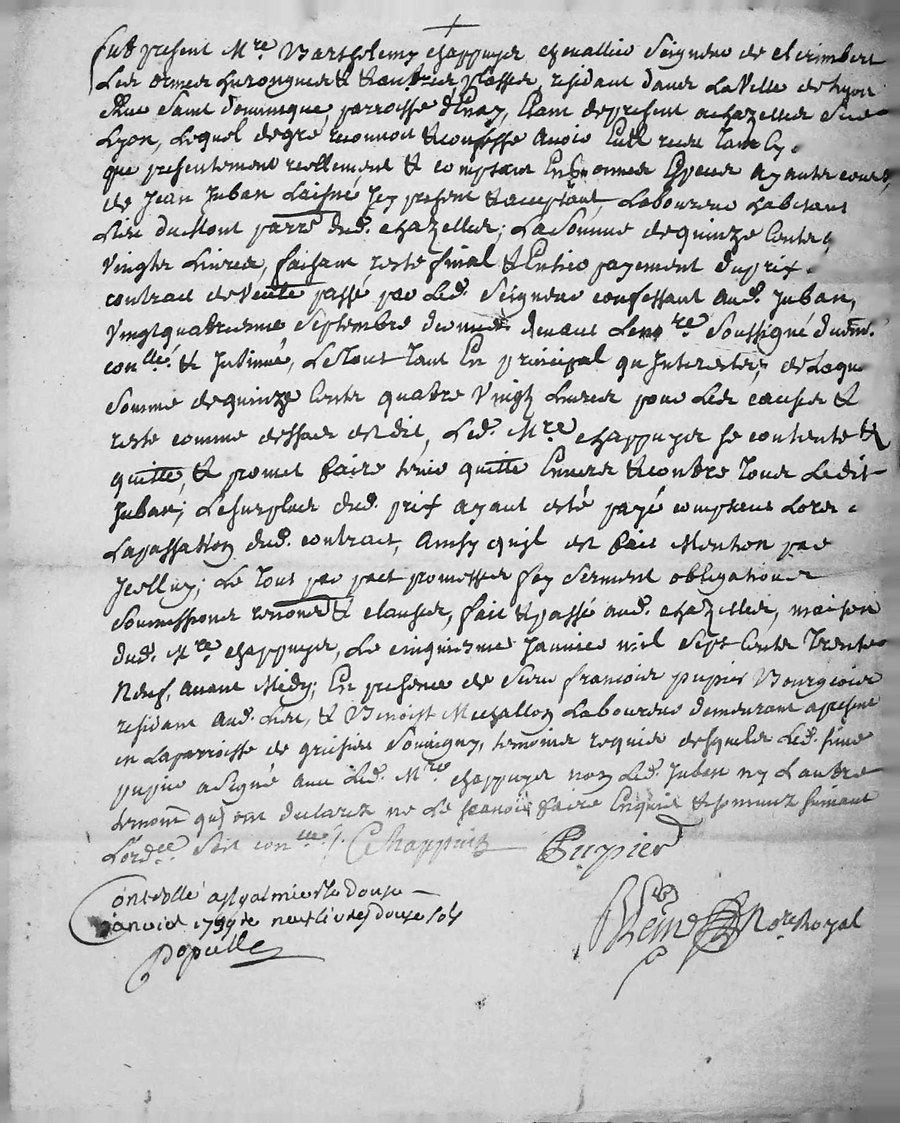 Fut present Mre Barthelemy chappuys chevallier Seigneur de
Les ormes & autres places, residant dans La Ville de Lyon
Rue Saint dominique, parroisse d'Enay, Etant de present a chazelles Sur
Lyon, Lequel de gré reconnoit & confesse avoir Eu & receu Tant cy
que presentement reellement & comptant En bonnes Especes ayants cours,
de Jean Juban Laisné Jcy present & acceptant Laboureur habitant
Lieu du Mont parre dud. chazelles; La Somme de quinze Cents
vingts Livres, faisant reste final & Entier payement du prix
contract de Vente passé par Led. Seigneur confessant aud. Juban,
vingtquatriesme Septembre dernier devant Le nore Soussigné
conllé & Jnsinué, Le Tout Tant En principal qu'Jnterests; de Laque
Somme de quinze Cents quatre vingts Livres pour Les causes &
reste comme dessus est dit, Led. Mre chappuys se contente &
quitte, & promet faire tenir quitte Envers & contre Tous Ledit
Juban; Le surplus dud. prix ayant esté payé comptant Lors
La passation dud. contract, Ainsy qu'il est fait Mention par
Jcelluy; Le Tout par pact promesses foy Serment obligations
Soumissions renons & clauses, fait & passé aud. chazelles, maison
dud. Mre chappuys, Le cinquiesme Janvier mil Sept Cents Trente
Neuf, avant Midy; En presence de Sieur francois pupier Bourgeois
residant aud. Lieu, & Benoist Laboureur demeurant a present
en La parroisse de temoins requis desquels Led. Sieur
pupier a signé avec Led. Mre chappuys non Led. Juban ny L'autre
temoin qui ont declarez ne Le scavoir faire Enquis & sommez suivant
L'ordce Soit conllé /. Chappuis Pupier
Controllé a St galmier Le Douze
janvier 1739 Re neuf livres douze sols
Nore Royal